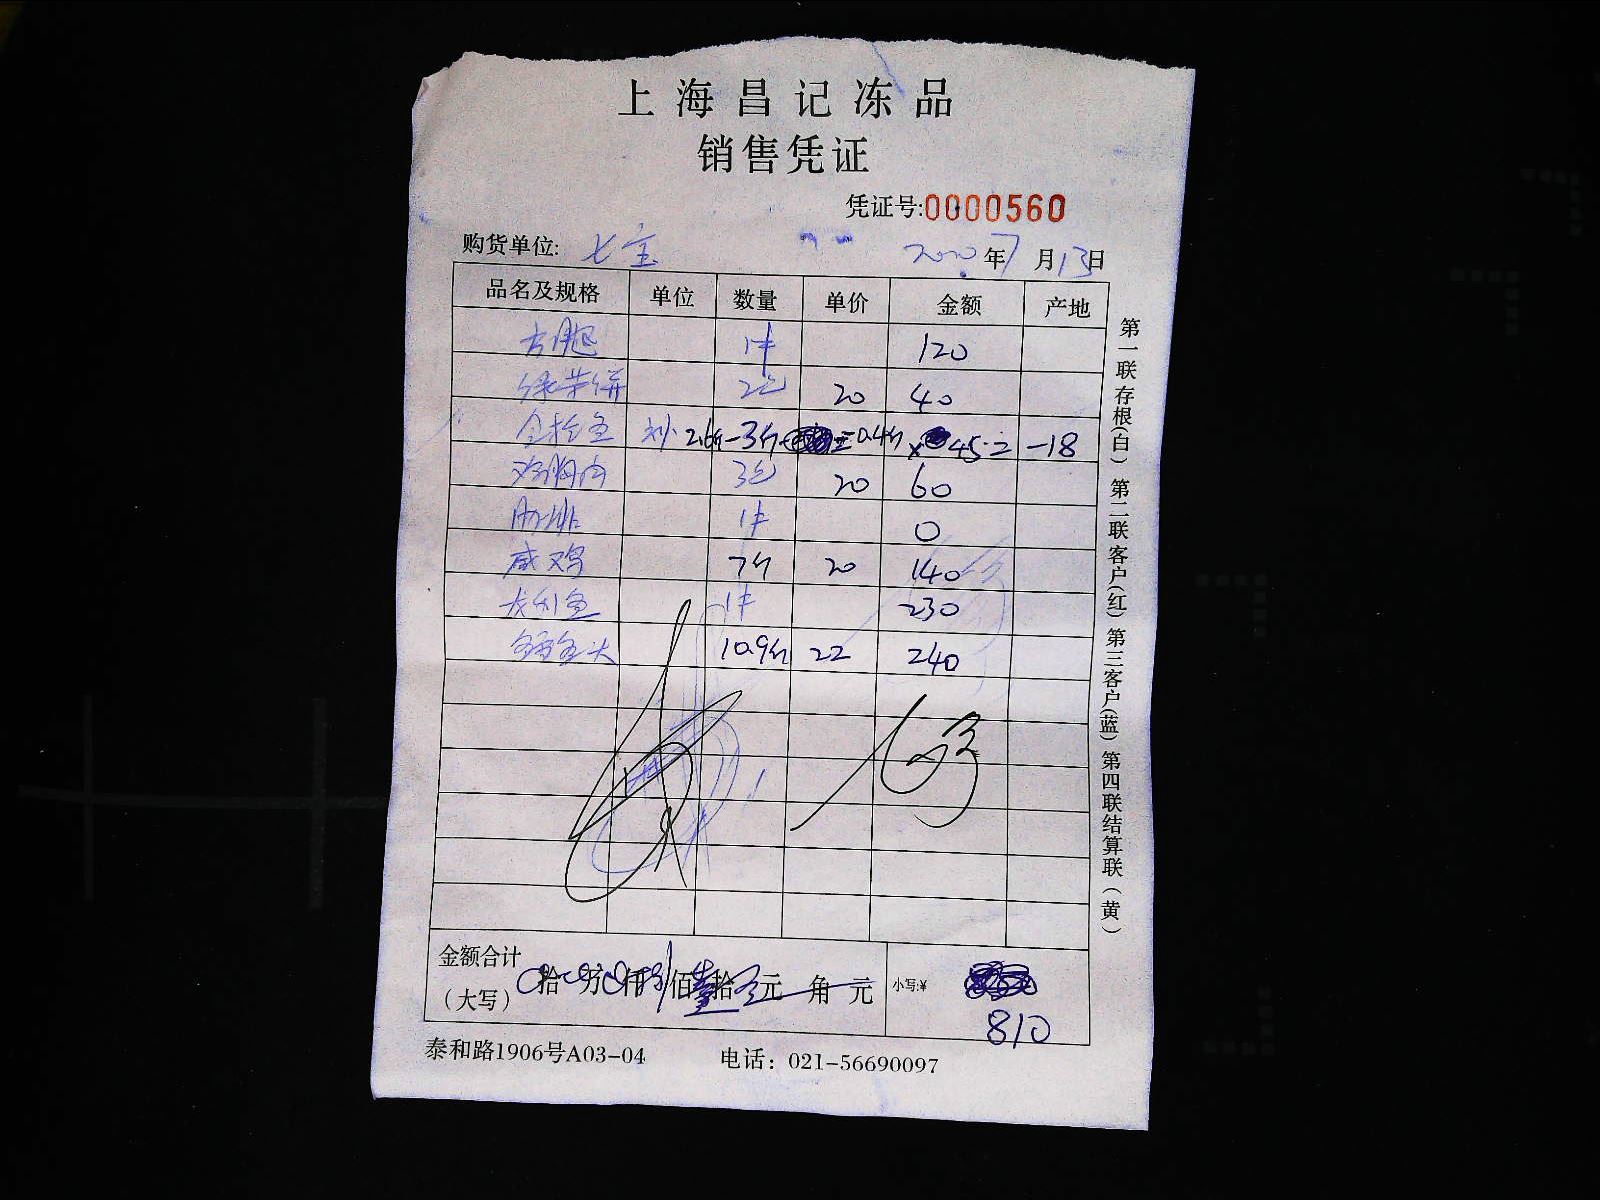 上海昌记冻品
销售凭证
凭证号:0000560
购货单位: 七宝 2020年7月13日
品名及规格 单位 数量 单价 金额 产地
方腿 1件 120
2包 20 40
2.6斤-3斤 =0.4斤 x 45= -18
鸡胸肉 3包 20 60
肋排 1件 0
咸鸡 7斤 20 140
龙利鱼 1件 230
鱼头 10.9斤 22 240
金额合计
(大写) 拾 万 仟 捌佰壹拾 元 角 元 小写:¥
810
泰和路1906号A03-04 电话: 021-56690097
第一联存根(白) 第二联客户(红) 第三客户(蓝) 第四联结算联(黄)